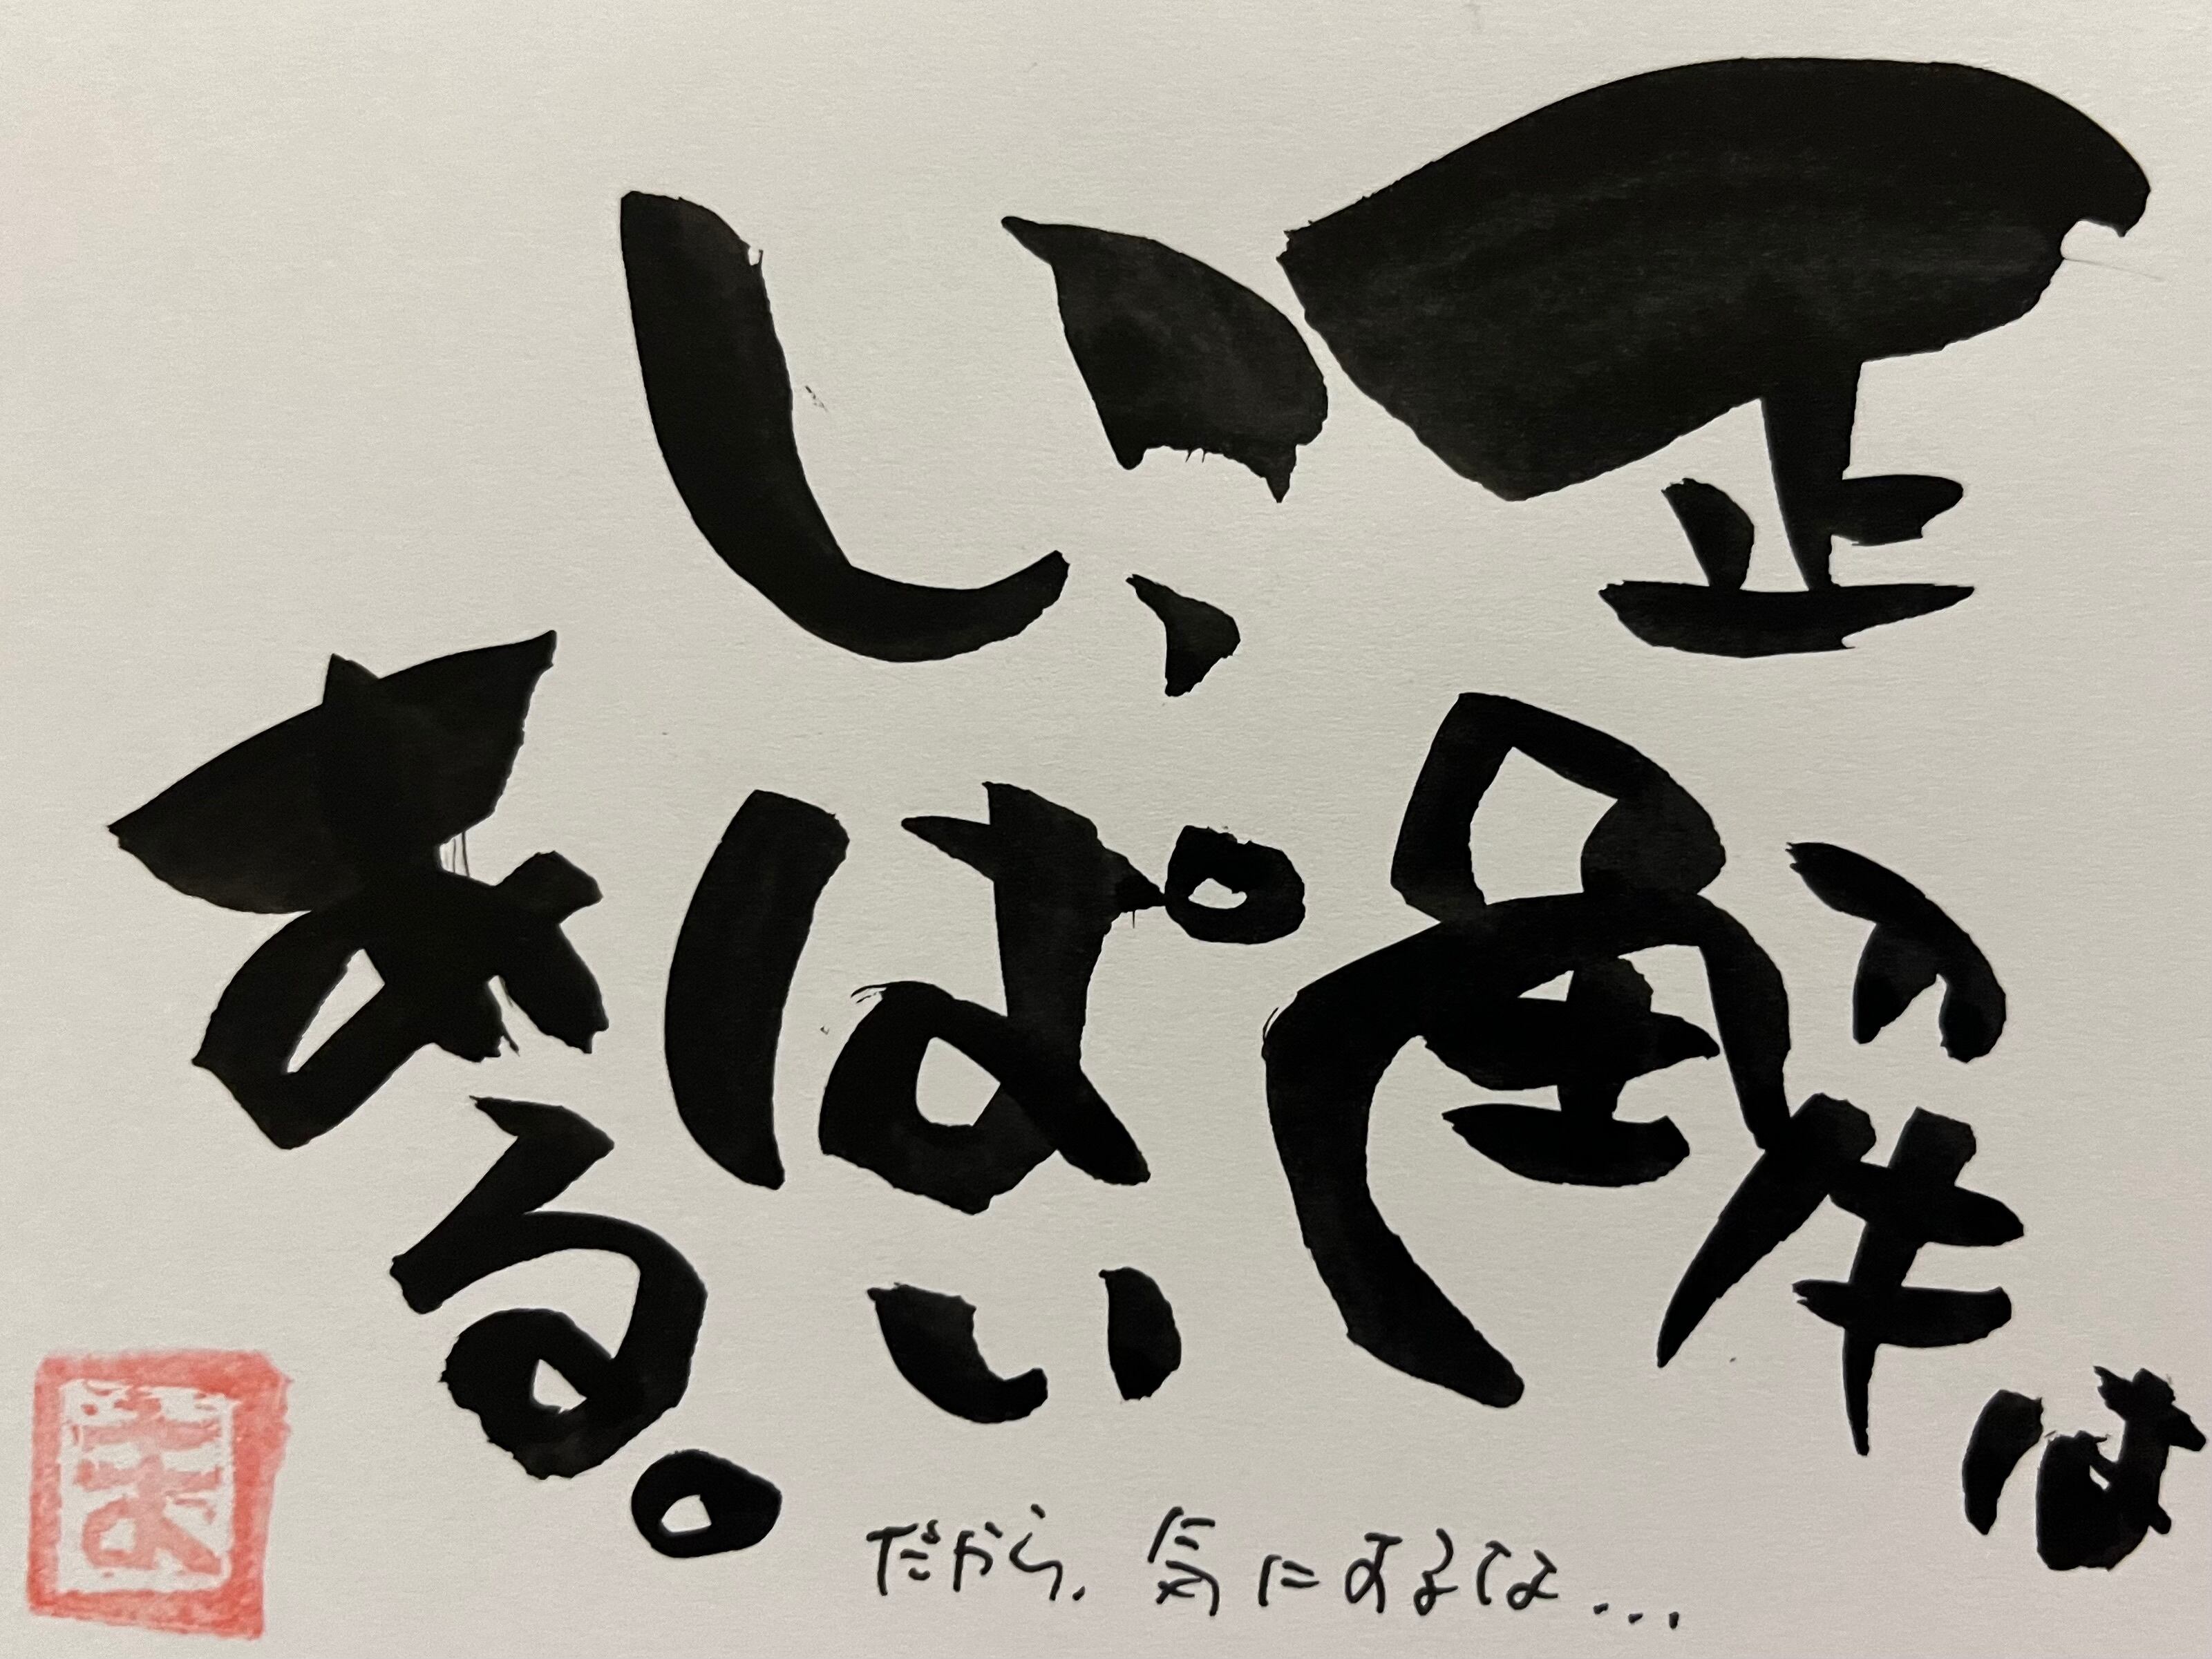 正解は
いっぱい
ある。
だから、気にするな...